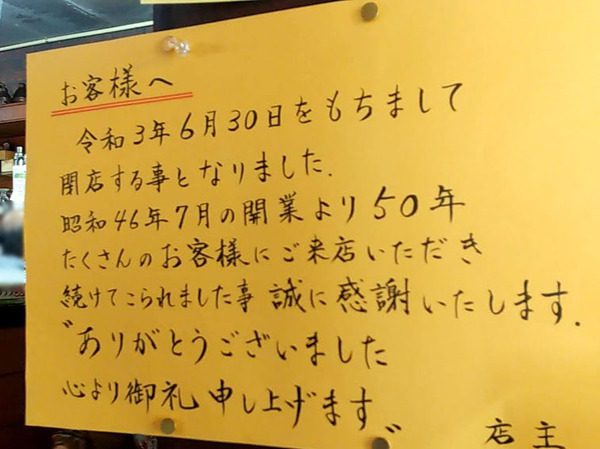 お客様へ
令和3年6月30日をもちまして
閉店する事となりました.
昭和46年7月の開業より50年
たくさんのお客様にご来店いただき
続けてこられました事 誠に感謝いたします.
〝ありがとうございました
心より御礼申し上げます〟
店主